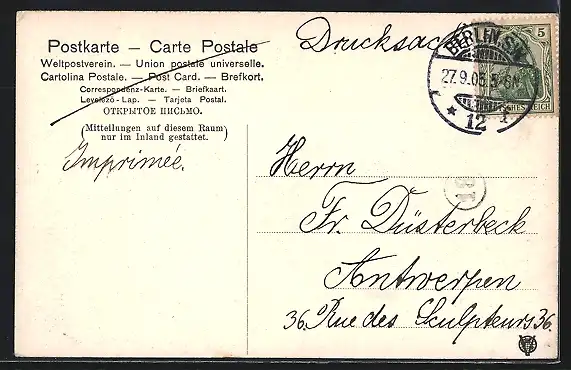 Postkarte — Carte Postale
Weltpostverein. — Union postale universelle.
Cartolina Postale. — Post Card. — Brefkort.
Correspondenz-Karte. — Briefkaart.
Levelező-Lap. — Tarjeta Postal.
ОТКРЫТОЕ ПИСЬМО.
(Mitteilungen auf diesem Raum)
nur im Inland gestattet.
Imprimée.
Drucksache
BERLIN. S.W.
27.9.05.
* 12
5
Herrn
Fr. Düsterbeck
Antwerpen
36. Rue des Sculpteurs 36.